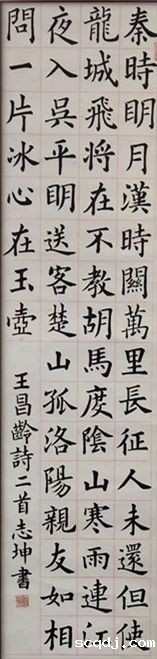 秦時明月漢時關萬里長征人未還但使
龍城飛将在不教胡馬度陰山寒雨連江
夜入吳平明送客楚山孤洛陽親友如相
問一片冰心在玉壺
王昌齡詩二首志坤書
scqdj.com